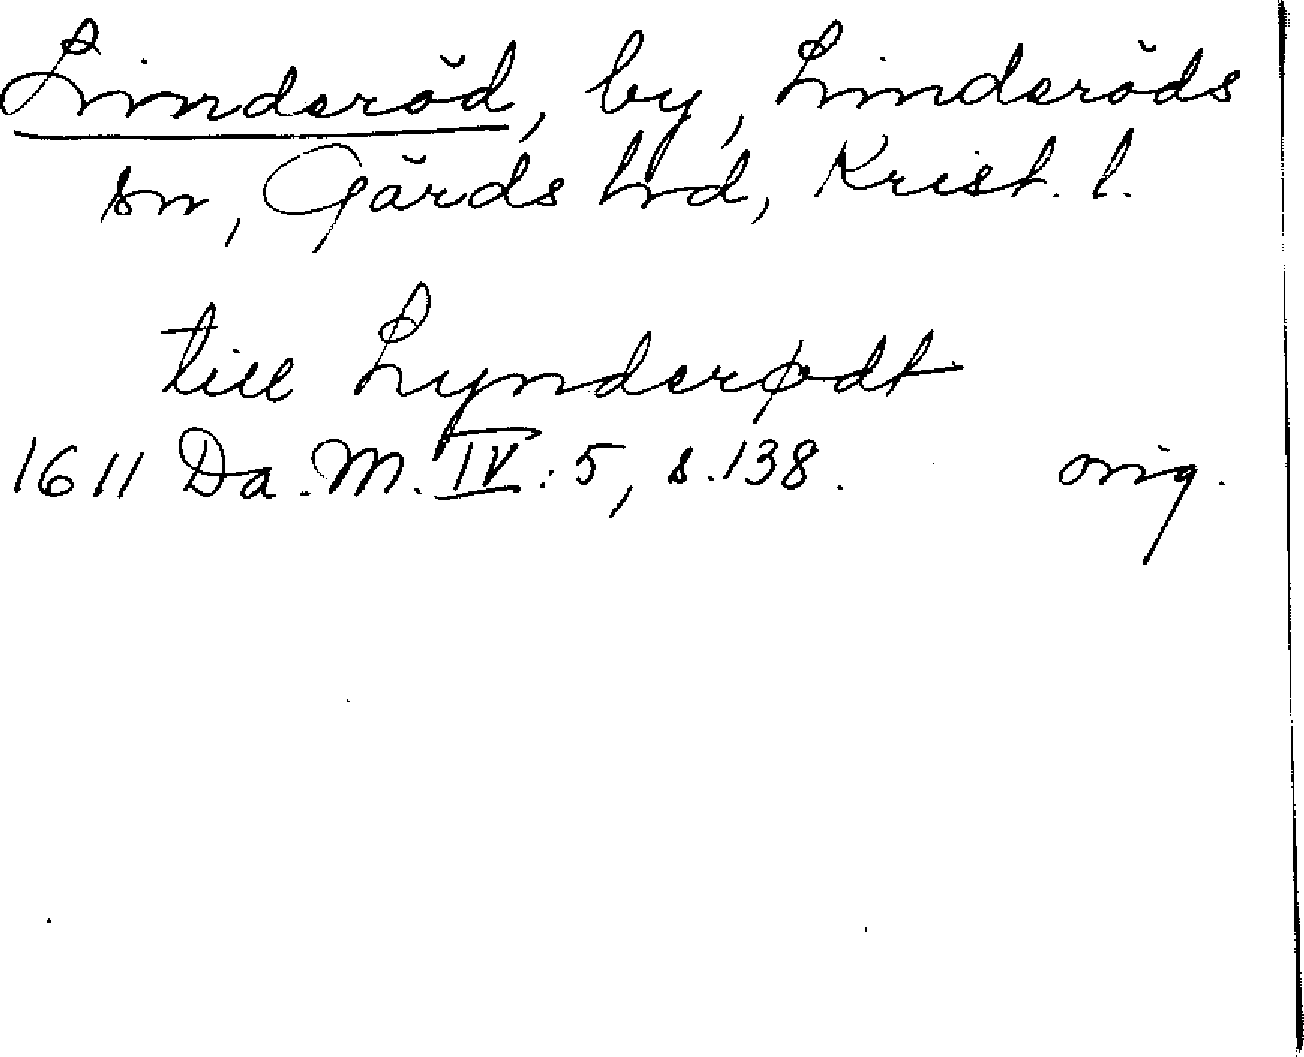 Linderöd, by, Linderöds
sn, Gärds hd, Krist. l.
till Lynderødt
1611 Da. M. IV: 5, s. 138. orig.